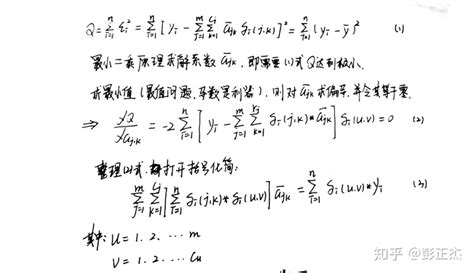 Q = Σ_{i=1}^{n} ε_i² = Σ_{i=1}^{n} [y_i - Σ_{j=1}^{m} Σ_{k=1}^{c_j} ā_{jk} δ_i(j.k)]² = Σ_{i=1}^{n} (y_i - ȳ)² (1)
最小二乘原理求解系数 ā_{jk}, 即需要(1)式Q达到极小.
求最小值(最值问题, 导数是利器), 则对 ā_{jk} 求偏导, 并令其等于零.
⇒ ∂Q/∂a_{j.k} = -2 Σ_{i=1}^{n} [y_i - Σ_{j=1}^{m} Σ_{k=1}^{c_j} δ_i(j.k)*ā_{jk}] δ_i(u.v) = 0 (2)
整理(2)式, 打开括号化简:
Σ_{j=1}^{m} Σ_{k=1}^{c_j} [Σ_{i=1}^{n} δ_i(j.k)*δ_i(u.v)] ā_{jk} = Σ_{i=1}^{n} δ_i(u.v)*y_i (3)
其中: u = 1. 2. ··· m
v = 1. 2. ··· c_u
知乎 @彭正杰